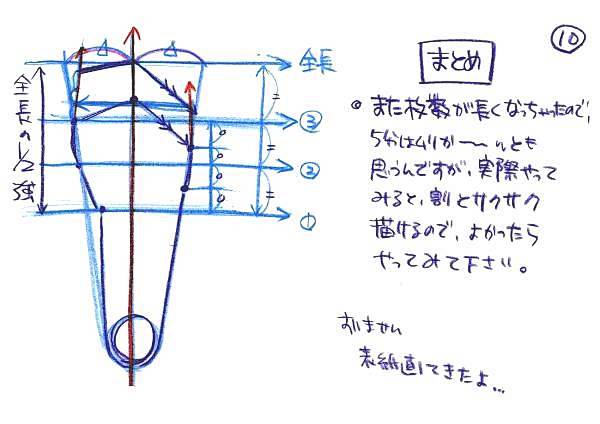 ⑩
まとめ
全長
③
②
①
全長の1/2強
。また枚数が長くなっちゃったので、
5分はムリか〜〜んとも
思うんですが、実際やって
みると、割とサクサク
描けるので、よかったら
やってみて下さい。
すいません
表紙直してきたよ…